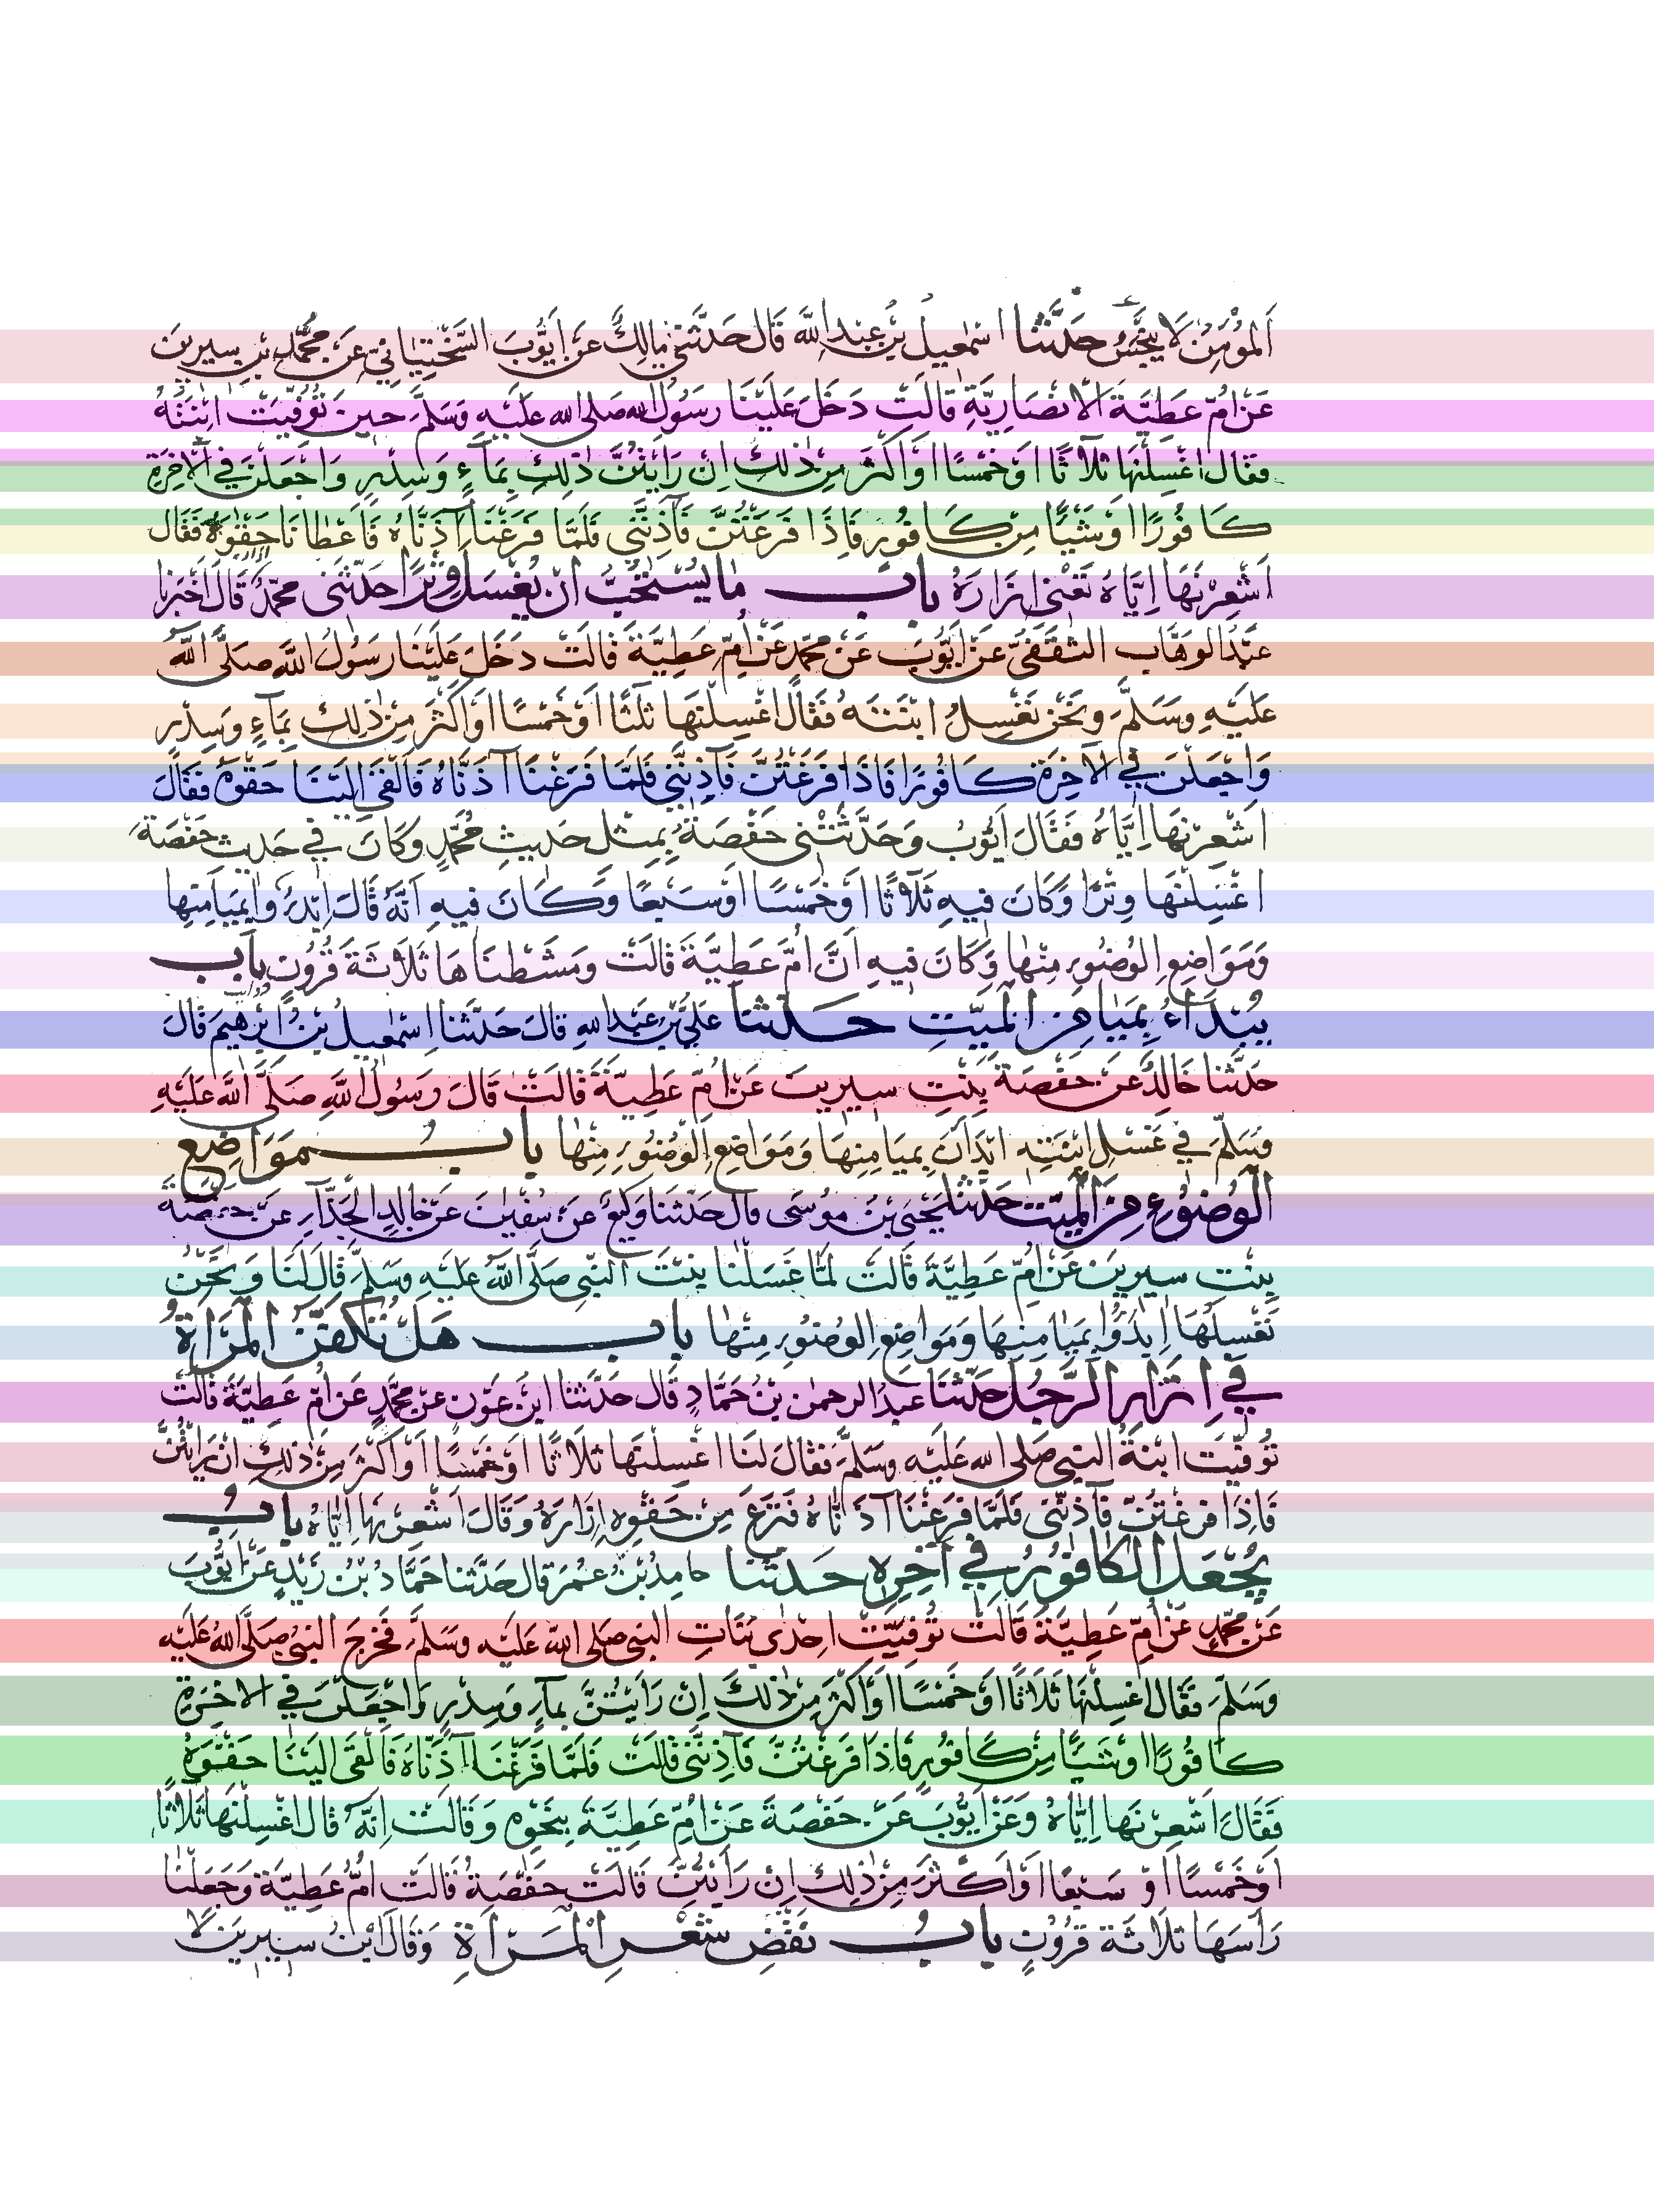 اَلمُؤْمِنُ لَا يَنْجُسُ حَدَّثَنَا اسْمٰعِيلُ بْنُ عَبْدِ اللَّهِ قَالَ حَدَّثَنِي مَالِكٌ عَنْ اَيُّوبَ السَّخْتِيَانِيِّ عَنْ مُحَمَّدِ بْنِ سِيرِينَ
عَنْ اُمِّ عَطِيَّةَ الْاَنْصَارِيَّةِ قَالَتْ دَخَلَ عَلَيْنَا رَسُولُ الله صَلى الله عَلَيْهِ وَسَلَّمَ حِينَ تُوُفِّيَتْ ابْنَتُهُ
فَقَالَ اغْسِلْنَهَا ثَلَاثًا اَوْ خَمْسًا اَوْ اَكْثَرَ مِنْ ذٰلِكَ اِنْ رَاَيْتُنَّ ذٰلِكَ بِمَآءٍ وَسِدْرٍ وَاجْعَلْنَ فِي الْآخِرَةِ
كَافُورًا اَوْ شَيْئًا مِنْ كَافُورٍ فَاِذَا فَرَغْتُنَّ فَآذِنَّنِي فَلَمَّا فَرَغْنَا آذَنَّاهُ فَاَعْطَانَا حِقْوَهُ فَقَالَ
اَشْعِرْنَهَا اِيَّاهُ تَعْنِي اِزَارَهُ بَاب مَا يُسْتَحَبُّ اَنْ يُغْسَلَ وِتْرًا حَدَّثَنِي مُحَمَّدٌ قَالَ اَخْبَرَنَا
عَبْدُ الْوَهَّابِ الثَّقَفِيُّ عَنْ اَيُّوبَ عَنْ مُحَمَّدٍ عَنْ اُمِّ عَطِيَّةَ قَالَتْ دَخَلَ عَلَيْنَا رَسُولُ اللَّهِ صَلَّى اللَّهُ
عَلَيْهِ وَسَلَّمَ وَنَحْنُ نَغْسِلُ ابْنَتَهُ فَقَالَ اغْسِلْنَهَا ثَلٰثًا اَوْ خَمْسًا اَوْ اَكْثَرَ مِنْ ذٰلِكَ بِمَآءٍ وَسِدْرٍ
وَاجْعَلْنَ فِي الْآخِرَةِ كَافُورًا فَاِذَا فَرَغْتُنَّ فَآذِنَّنِي فَلَمَّا فَرَغْنَا آذَنَّاهُ فَاَلْقَى اِلَيْنَا حَقْوَهُ فَقَالَ
اَشْعِرْنَهَا اِيَّاهُ فَقَالَ اَيُّوبُ وَحَدَّثَتْنِي حَفْصَةُ بِمِثْلِ حَدِيثِ مُحَمَّدٍ وَكَانَ فِي حَدِيثِ حَفْصَةَ
اغْسِلْنَهَا وِتْرًا وَكَانَ فِيهِ ثَلَاثًا اَوْ خَمْسًا اَوْ سَبْعًا وَكَانَ فِيهِ اَنَّهُ قَالَ ابْدَءُوا بِمَيَامِنِهَا
وَمَوَاضِعِ الْوُضُوءِ مِنْهَا وَكَانَ فِيهِ اَنَّ اُمَّ عَطِيَّةَ قَالَتْ وَمَشَطْنَاهَا ثَلَاثَةَ قُرُونٍ بَاب
يُبْدَاُ بِمَيَامِنِ الْمَيِّتِ حَدَّثَنَا عَلِيُّ بْنُ عَبْدِ اللهِ قَالَ حَدَّثَنَا اِسْمٰعِيلُ بْنُ اِبْرٰهِيمَ قَالَ
حَدَّثَنَا خَالِدٌ عَنْ حَفْصَةَ بِنْتِ سِيرِينَ عَنْ اُمِّ عَطِيَّةَ قَالَتْ قَالَ رَسُولُ اللَّهِ صَلَّى اللَّهُ عَلَيْهِ
وَسَلَّمَ فِي غَسْلِ ابْنَتِهِ ابْدَاْنَ بِمَيَامِنِهَا وَمَوَاضِعِ الْوُضُوءِ مِنْهَا بَابُ مَوَاضِعِ
الْوُضُوءِ مِنَ الْمَيِّتِ حَدَّثَنَا يَحْيَى بْنُ مُوسَى قَالَ حَدَّثَنَا وَكِيعٌ عَنْ سُفْيٰنَ عَنْ خَالِدٍ الْحَذَّآءِ عَنْ حَفْصَةَ
بِنْتِ سِيرِينَ عَنْ اُمِّ عَطِيَّةَ قَالَتْ لَمَّا غَسَلْنَا بِنْتَ النَّبِيِّ صَلَّى اللَّهُ عَلَيْهِ وَسَلَّمَ قَالَ لَنَا وَنَحْنُ
نَغْسِلُهَا ابْدَؤُوا بِمَيَامِنِهَا وَمَوَاضِعِ الْوُضُوءِ مِنْهَا بَاب هَلْ تُكَفَّنُ الْمَرْاَةُ
فِي اِزَارِ الرَّجُلِ حَدَّثَنَا عَبْدُ الرحمٰن بْنُ حَمَّادٍ قَالَ حَدَّثَنَا ابْنُ عَوْنٍ عَنْ مُحَمَّدٍ عَنْ اُمِّ عَطِيَّةَ قَالَتْ
تُوُفِّيَتْ ابْنَةُ النَّبِي صَلى الله عَلَيْهِ وَسَلَّمَ فَقَالَ لَنَا اغْسِلْنَهَا ثَلَاثًا اَوْ خَمْسًا اَوْ اَكْثَرَ مِنْ ذٰلِكَ اِنْ رَاَيْتُنَّ
فَاِذَا فَرَغْتُنَّ فَآذِنَّنِي فَلَمَّا فَرَغْنَا آذَنَّاهُ فَنَزَعَ مِنْ حَقْوِهِ اِزَارَهُ وَقَالَ اَشْعِرْنَهَا اِيَّاهُ بَابُ
يُجْعَلُ الْكَافُورُ فِي آخِرِهِ حَدَّثَنَا حَامِدُ بْنُ عُمَرَ قَالَ حَدَّثَنَا حَمَّادُ بْنُ زَيْدٍ عَنْ اَيُّوبَ
عَنْ مُحَمَّدٍ عَنْ اُمِّ عَطِيَّةَ قَالَتْ تُوُفِّيَتْ اِحْدَى بَنَاتِ النَّبِي صَلى اللَّه عَلَيْهِ وَسَلَّمَ فَخَرَجَ النَّبِيُّ صَلَّى اللَّهُ عَلَيْهِ
وَسَلَّمَ فَقَالَ اغْسِلْنَهَا ثَلَاثًا اَوْ خَمْسًا اَوْ اَكْثَرَ مِنْ ذٰلِكَ اِنْ رَاَيْتُنَّ بِمَآءٍ وَسِدْرٍ وَاجْعَلْنَ فِي الْاخِرَةِ
كَافُورًا اَوْ شَيْئًا مِنْ كَافُورٍ فَاِذَا فَرَغْتُنَّ فَآذِنَّنِي قَالَتْ فَلَمَّا فَرَغْنَا آذَنَّاهُ فَاَلْقَى اِلَيْنَا حَقْوَهُ
فَقَالَ اَشْعِرْنَهَا اِيَّاهُ وَعَنْ اَيُّوبَ عَنْ حَفْصَةَ عَنْ اُمِّ عَطِيَّةَ بِنَحْوِهِ وَقَالَتْ اِنَّهُ قَالَ اغْسِلْنَهَا ثَلَاثًا
اَوْ خَمْسًا اَوْ سَبْعًا اَوْ اَكْثَرَ مِنْ ذٰلِكَ اِنْ رَاَيْتُنَّ قَالَتْ حَفْصَةُ قَالَتْ اُمُّ عَطِيَّةَ وَجَعَلْنَا
رَاْسَهَا ثَلَاثَةَ قُرُونٍ بَابُ نَقْضِ شَعْرِ الْمَرْاَةِ وَقَالَ ابْنُ سِيرِينَ لَا